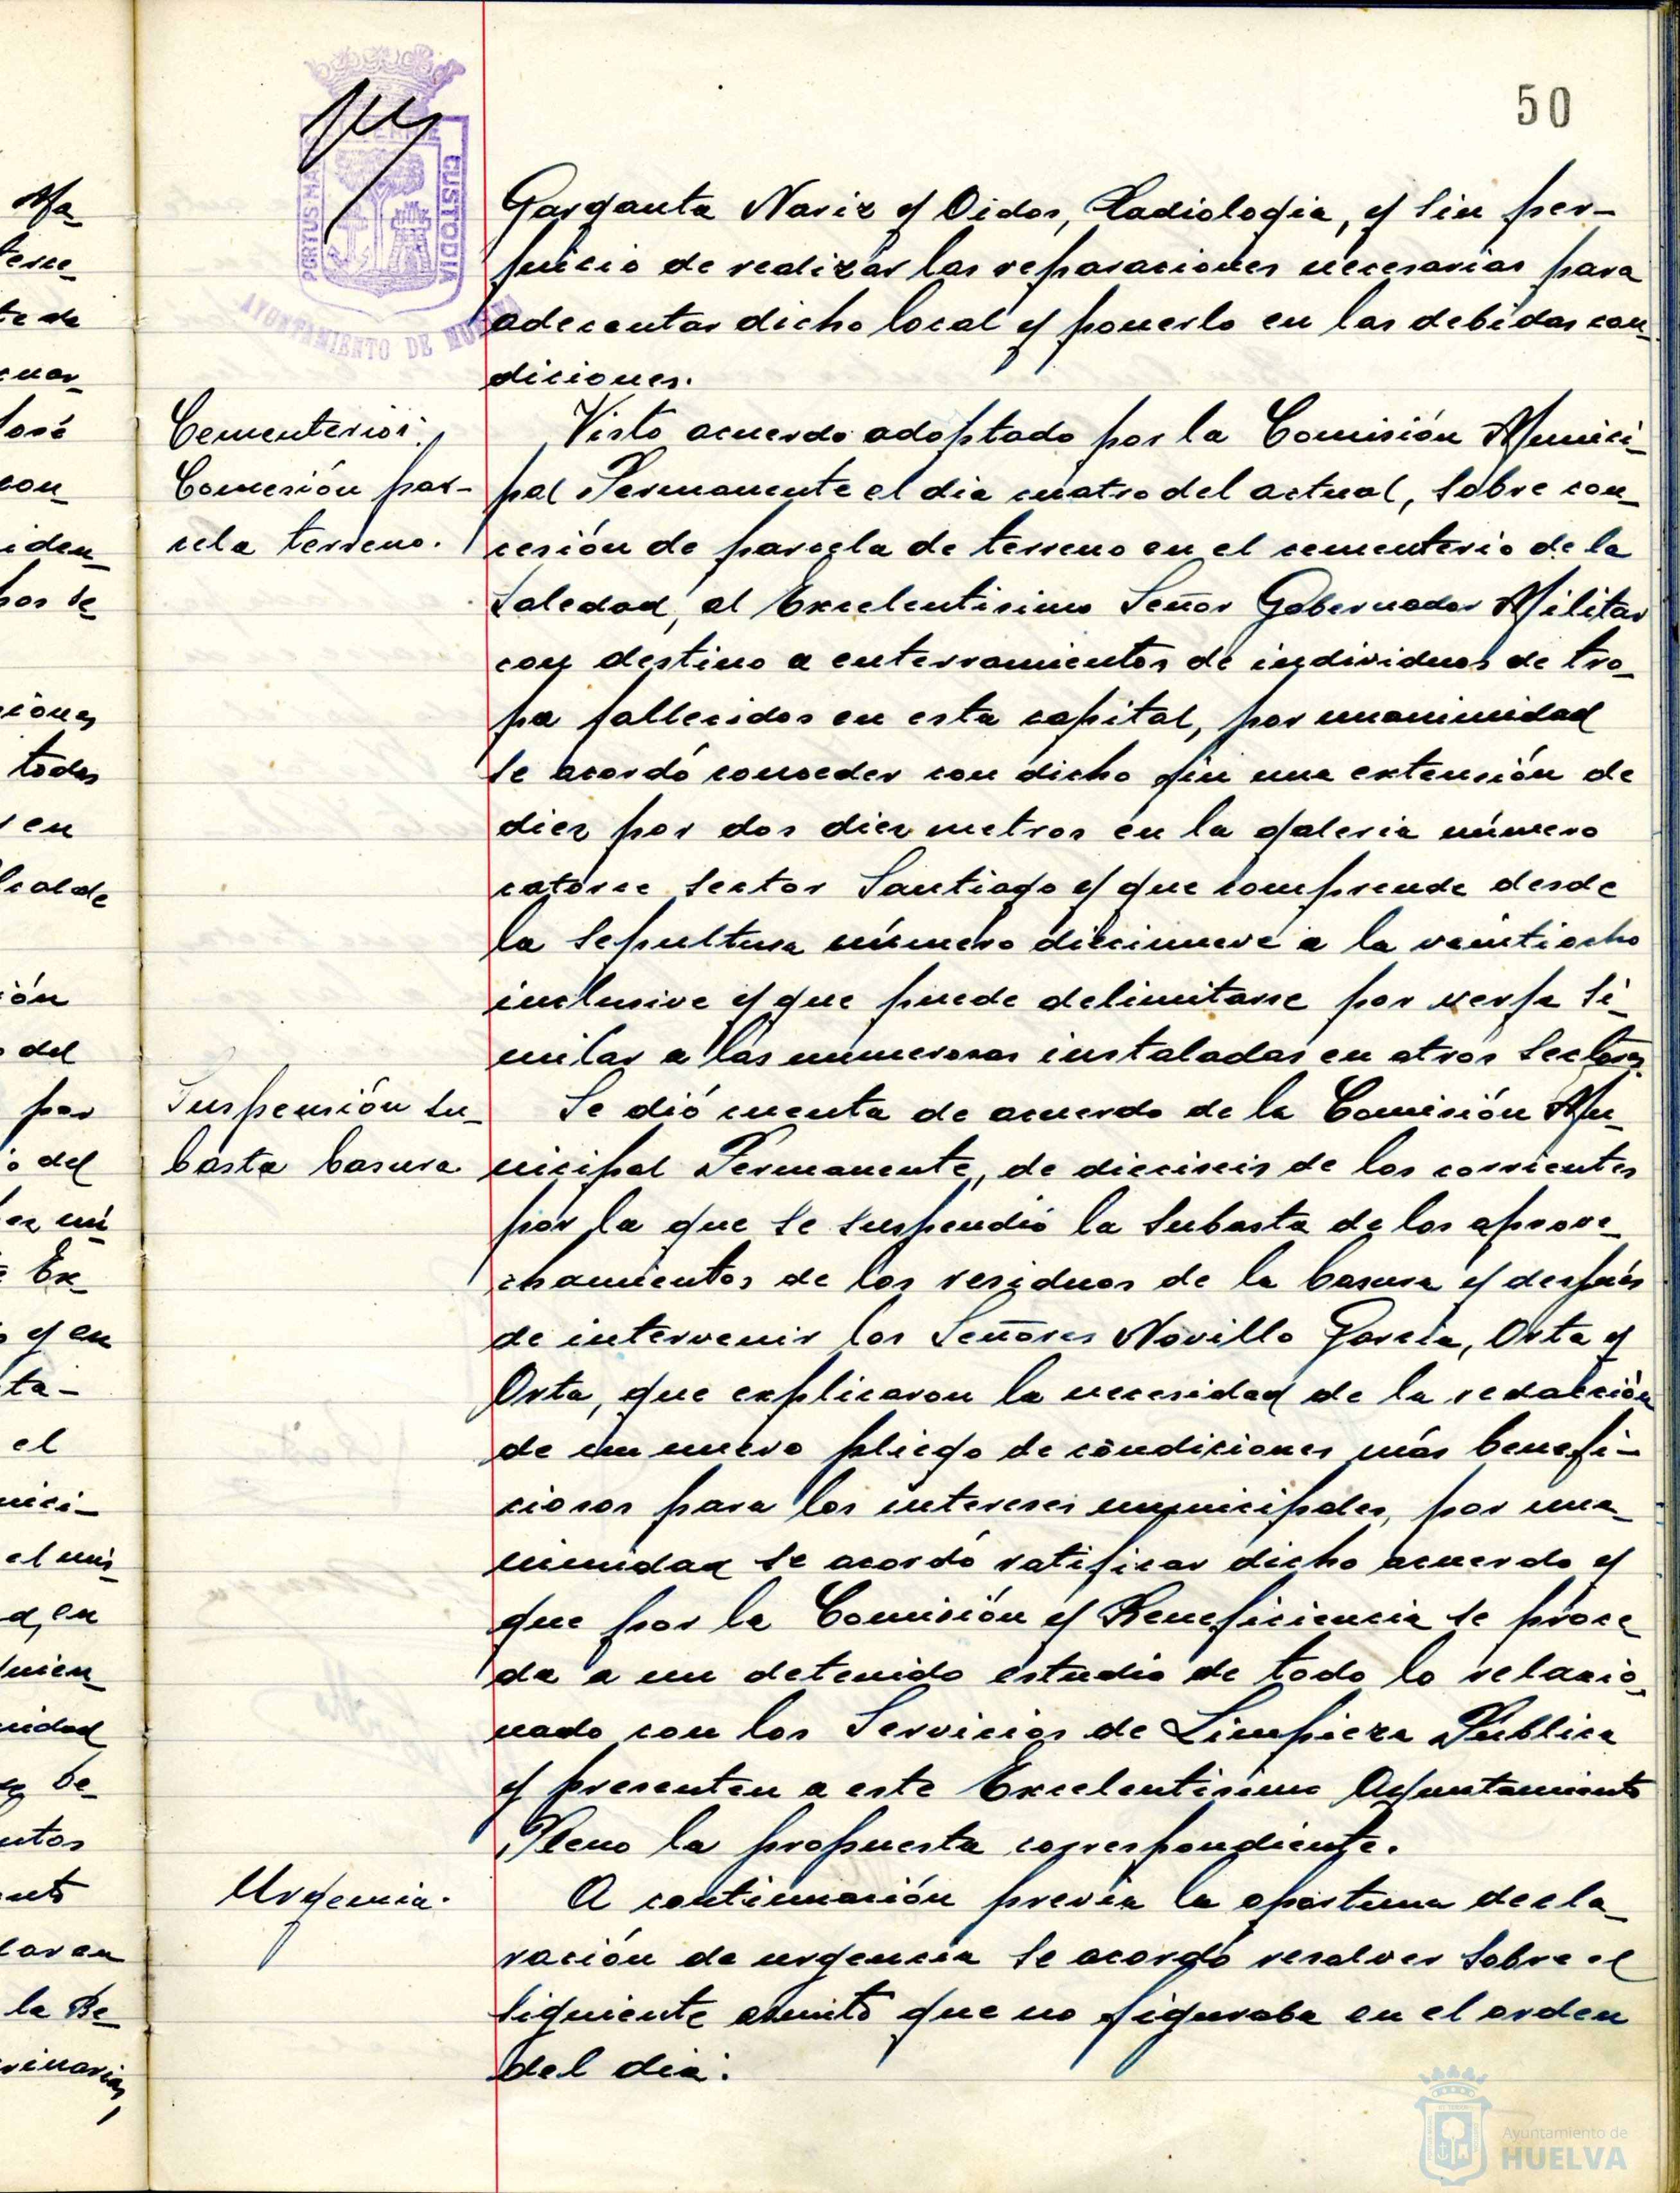 50
PORTUS MARIS ET TERRAE CUSTODIA
AYUNTAMIENTO DE HUELVA
Garganta Nariz y Oidos, Radiologia, y sin per-
juicio de realizar las reparaciones necesarias para
adecentar dicho local y ponerlo en las debidas con-
diciones.
Cementerios:
Concesión par-
cela terreno.
Visto acuerdo adoptado por la Comisión Munici-
pal Permanente el dia cuatro del actual, sobre con-
cesión de parcela de terreno en el cementerio de la
Soledad, al Excelentisimo Señor Gobernador Militar
con destino a enterramientos de individuos de tro-
pa fallecidos en esta capital, por unanimidad
se acordó conceder con dicho fin una extensión de
diez por dos diez metros en la galeria número
catorce sector Santiago y que comprende desde
la sepultura número diecinueve a la veintiocho
inclusive y que puede delimitarse por verja si-
milar a las numerosas instaladas en otros sectores.
Suspensión su-
basta basura
Se dió cuenta de acuerdo de la Comisión Mu-
nicipal Permanente, de dieciseis de los corrientes
por la que se suspendió la subasta de los aprove-
chamientos de los residuos de la basura y después
de intervenir los Señores Novillo Garcia, Orta y
Orta, que explicaron la necesidad de la redacción
de un nuevo pliego de condiciones más benefi-
ciosos para los intereses municipales, por una-
nimidad se acordó ratificar dicho acuerdo y
que por la Comisión y Beneficiencia se proce-
da a un detenido estudio de todo lo relacio-
nado con los Servicios de Limpieza Publica
y presenten a este Excelentisimo Ayuntamiento
Pleno la propuesta correspondiente.
Urgencia.
A continuación previa la oportuna decla-
ración de urgencia se acordó resolver sobre el
siguiente asunto que no figuraba en el orden
del dia:
Ayuntamiento de
HUELVA